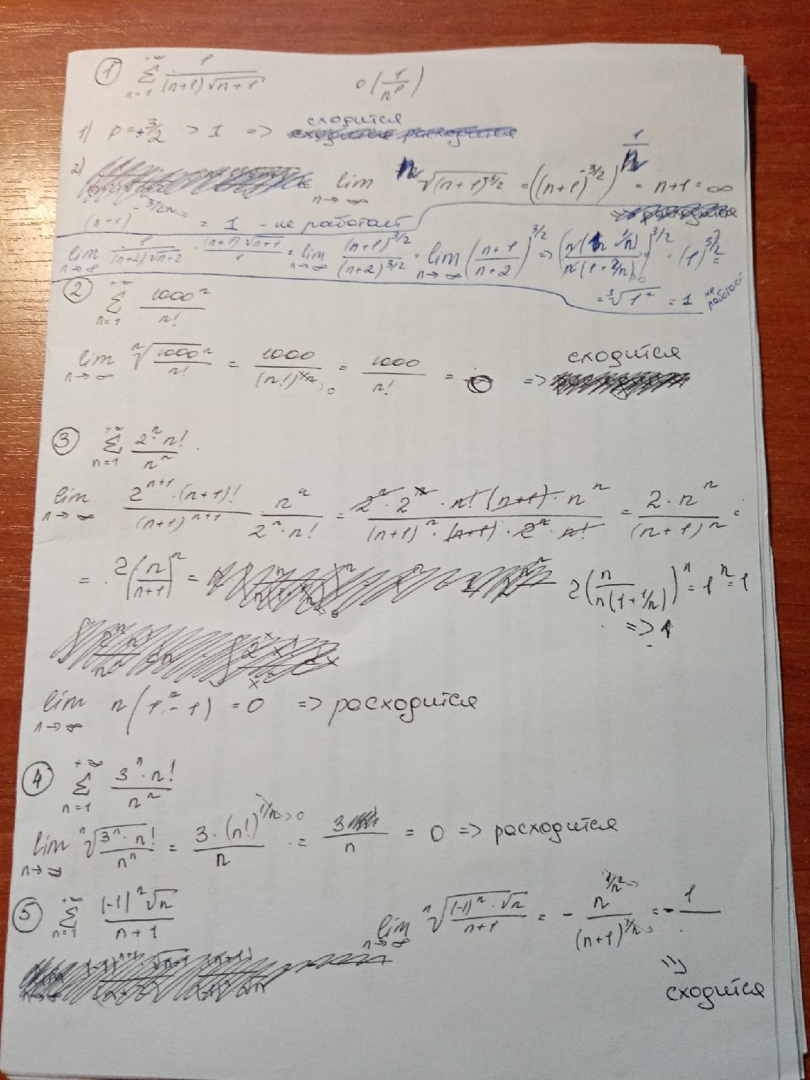 ① +∞ Σ n=1 1/((n+1)√(n+1)) O(1/n^p)
1) p = 3/2 > 1 => сходится
2) lim n→∞ ⁿ√(n+1)^(3/2) = ((n+1)^(-3/2))^(1/n) = n+1 = ∞
(n+1)^(-3/2n) = 1 - не работает
lim n→∞ 1/((n+2)√(n+2)) · ((n+1)√(n+1))/1 = lim n→∞ (n+1)^(3/2)/(n+2)^(3/2) = lim n→∞ ((n+1)/(n+2))^(3/2) => (n(1+1/n)/n(1+2/n))^(3/2) = (1)^(3/2) =
= ³√1² = 1 не работает
② +∞ Σ n=1 1000ⁿ/n!
lim n→∞ ⁿ√(1000ⁿ/n!) = 1000/(n!)^(1/n) = 1000/n! = 0 => сходится
③ +∞ Σ n=1 2ⁿn!/nⁿ
lim n→∞ (2ⁿ⁺¹·(n+1)!)/(n+1)ⁿ⁺¹ nⁿ/(2ⁿ·n!) = (2ⁿ·2·n!(n+1)·nⁿ)/((n+1)ⁿ·(n+1)·2ⁿ·n!) = (2·nⁿ)/(n+1)ⁿ =
= 2(n/(n+1))ⁿ = 2(n/(n(1+1/n)))ⁿ = 1ⁿ = 1
=> 1
lim n→∞ n(1ⁿ - 1) = 0 => расходится
④ +∞ Σ n=1 3ⁿ·n!/nⁿ
lim n→∞ ⁿ√(3ⁿ·n!/nⁿ) = 3·(n!)^(1/n)/n = 3/n = 0 => расходится
⑤ +∞ Σ n=1 (-1)ⁿ√n/(n+1) lim n→∞ ⁿ√((-1)ⁿ·√n/(n+1)) = - n^(1/2n)/(n+1)^(1/n) = - 1
=> сходится